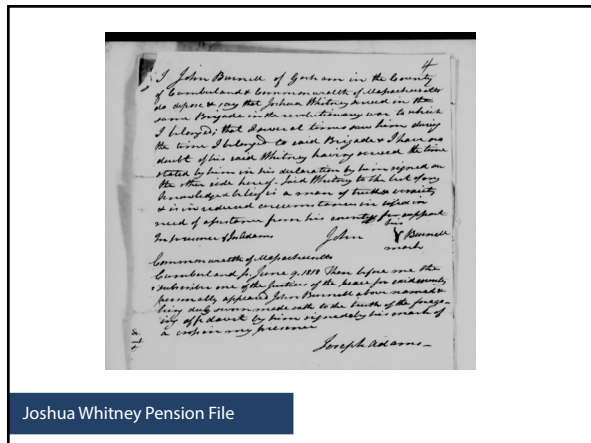 4
I John Burnell of Gorham in the County
of Cumberland & Commonwealth of Massachusetts
do depose & say that Joshua Whitney served in the
same Brigade in the revolutionary war to which
I belonged; that I several times saw him during
the time I belonged to said Brigade & I have no
doubt of his said Whitney having served the time
stated by him in his declaration by him signed on
the other side hereof. Said Whitney to the best of my
knowledge & belief is a man of truth & veracity
& is in reduced circumstances in
need of assistance from his country for support
In presence of Jos Adams John his X Burnell
mark
Commonwealth of Massachusetts
Cumberland ss. June 9. 1818 Then before me the
subscriber one of the justices of the peace for said county
personally appeared John Burnell above named &
being duly sworn made oath to the truth of the forego-
ing affidavit by him signed by his mark of
a cross in my presence
Joseph Adams
Joshua Whitney Pension File